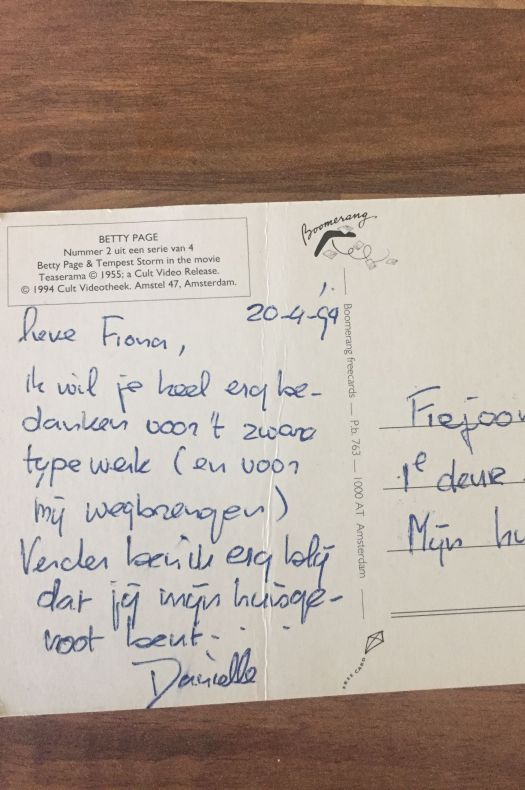 BETTY PAGE
Nummer 2 uit een serie van 4
Betty Page & Tempest Storm in the movie
Teaserama © 1955; a Cult Video Release.
© 1994 Cult Videotheek. Amstel 47, Amsterdam.
20-4-94
lieve Fiona,
ik wil je heel erg be-
danken voor 't zware
type werk (en voor
mij wegbrengen)
Verder ben ik erg blij
dat jij mijn huisge-
noot bent...
Daniëlle
Boomerang
Boomerang freecards — P.b. 763 — 1000 AT Amsterdam
FREE CARD
Fiejoon
1e deur
Mijn hu